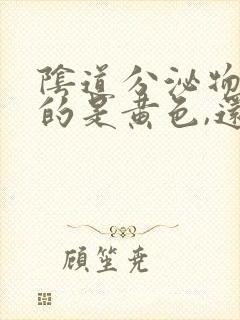 陰道分泌物
的是黃色,還
顧笙堯